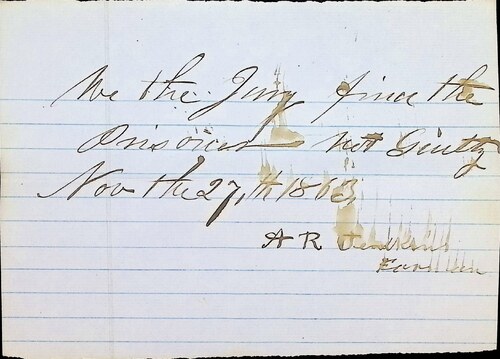 We the Jury finde the
Prisoner not Guilty
Nov the 27,th 1863,
A R Jenkins
Foreman